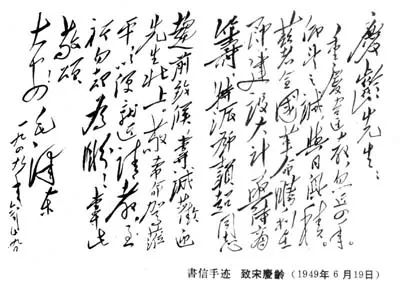 慶齡先生：
重慶違教，忽近四年。
仰望之誠，與日俱積。
茲者全國革命勝利在
即，建設大計，亟待商
籌，特派鄧穎超同志
趨前致候，專誠歡迎
先生北上。敬希命駕蒞
平，以便就近請教，至
祈勿却為盼！專此
敬頌
大安！ 毛澤東
一九四九年六月十九日
書信手迹 致宋慶齡（1949年6月19日）